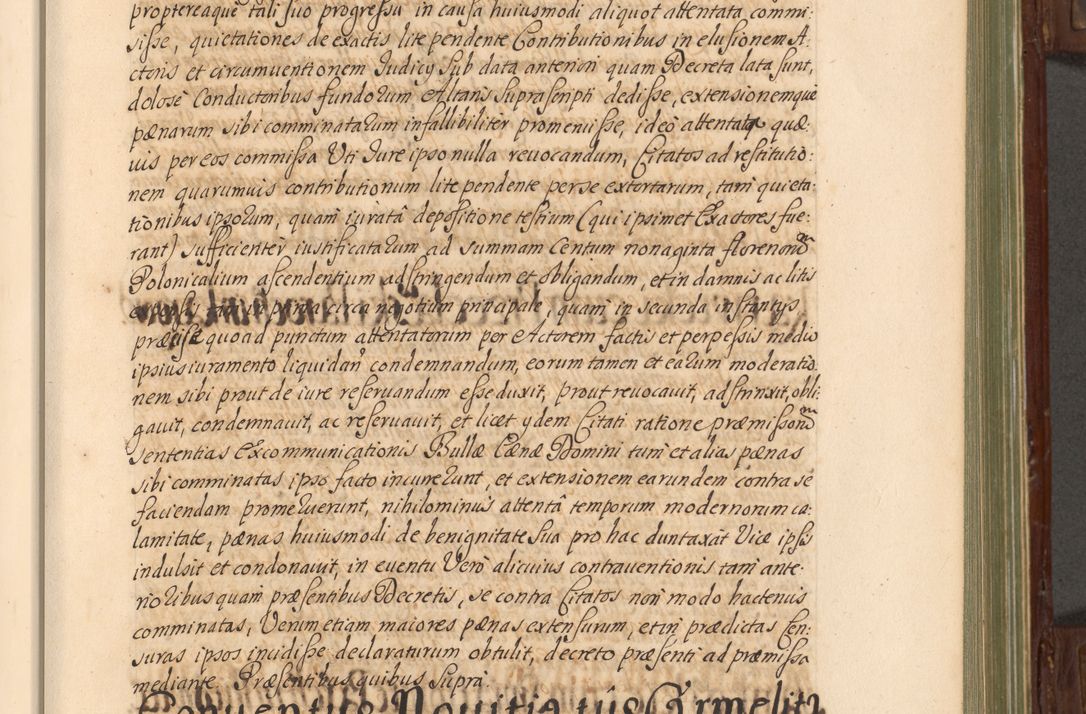 proptereaque tali suo progressu in causa huiusmodi aliquot attentata commi-
sisse, quietationes de exactis lite pendente Contributionibus in elusionem A-
ctoris et circumventionem Judicij sub data anteriori quam Decreta lata sunt,
dolosé Conductoribus fundorum Altaris suprascripti dedisse, extensionemque
pænarum sibi comminatarum infallibiliter promeruisse, ideó attentata quæ-
vis per eos commissa Uti Jure ipso nulla revocandum, Citatos ad restitutio:
nem quarumvis contributionum lite pendente per se extortarum, tam quieta:
tionibus ipsorum, quam iuratâ depositione testium (qui ipsimet Exactores fue:
rant) sufficienter iustificatarum ad summam Centum nonaginta florenorum
Polonicalium ascendentium adstringendum et obligandum, et in damnis ac litis
expensis tam in prima circa negotium principale, quam in secunda instantijs
præcisé quoad punctum attentatorum per Actorem factis et perpessis medio
ipsius iuramento liquidan condemnandum, eorum tamen et earum moderatio:
nem sibi prout de iure reservandum esse duxit, prout revocavit, adstrinxit, obli:
gavit, condemnavit, ac reservavit, et licet ijdem Citati ratione præmissorum
sententias Excommunicationis Bullæ Cænæ Domini tum et alias pænas
sibi comminatas ipso facto incurerunt, et extensionem earundem contra sé
faciendam promeruerunt, nihilominus attentâ temporum modernorum ca:
lamitate, pænas huiusmodi de benignitate sua pro hac duntaxat Vice ipsis
indulsit et condonavit, in eventu Veró alicuius contraventionis tam ante-
rioribus quam præsentibus Decretis, se contra Citatos non modo hactenus
comminatas, Verum etiam maiores pænas extensurum, et in prædictas Cen:
suras ipsos incidisse declaraturum obtulit, decreto præsenti ad præmissa
mediante. Præsentibus quibus supra.
Conventus Novitiatûs Carmelita